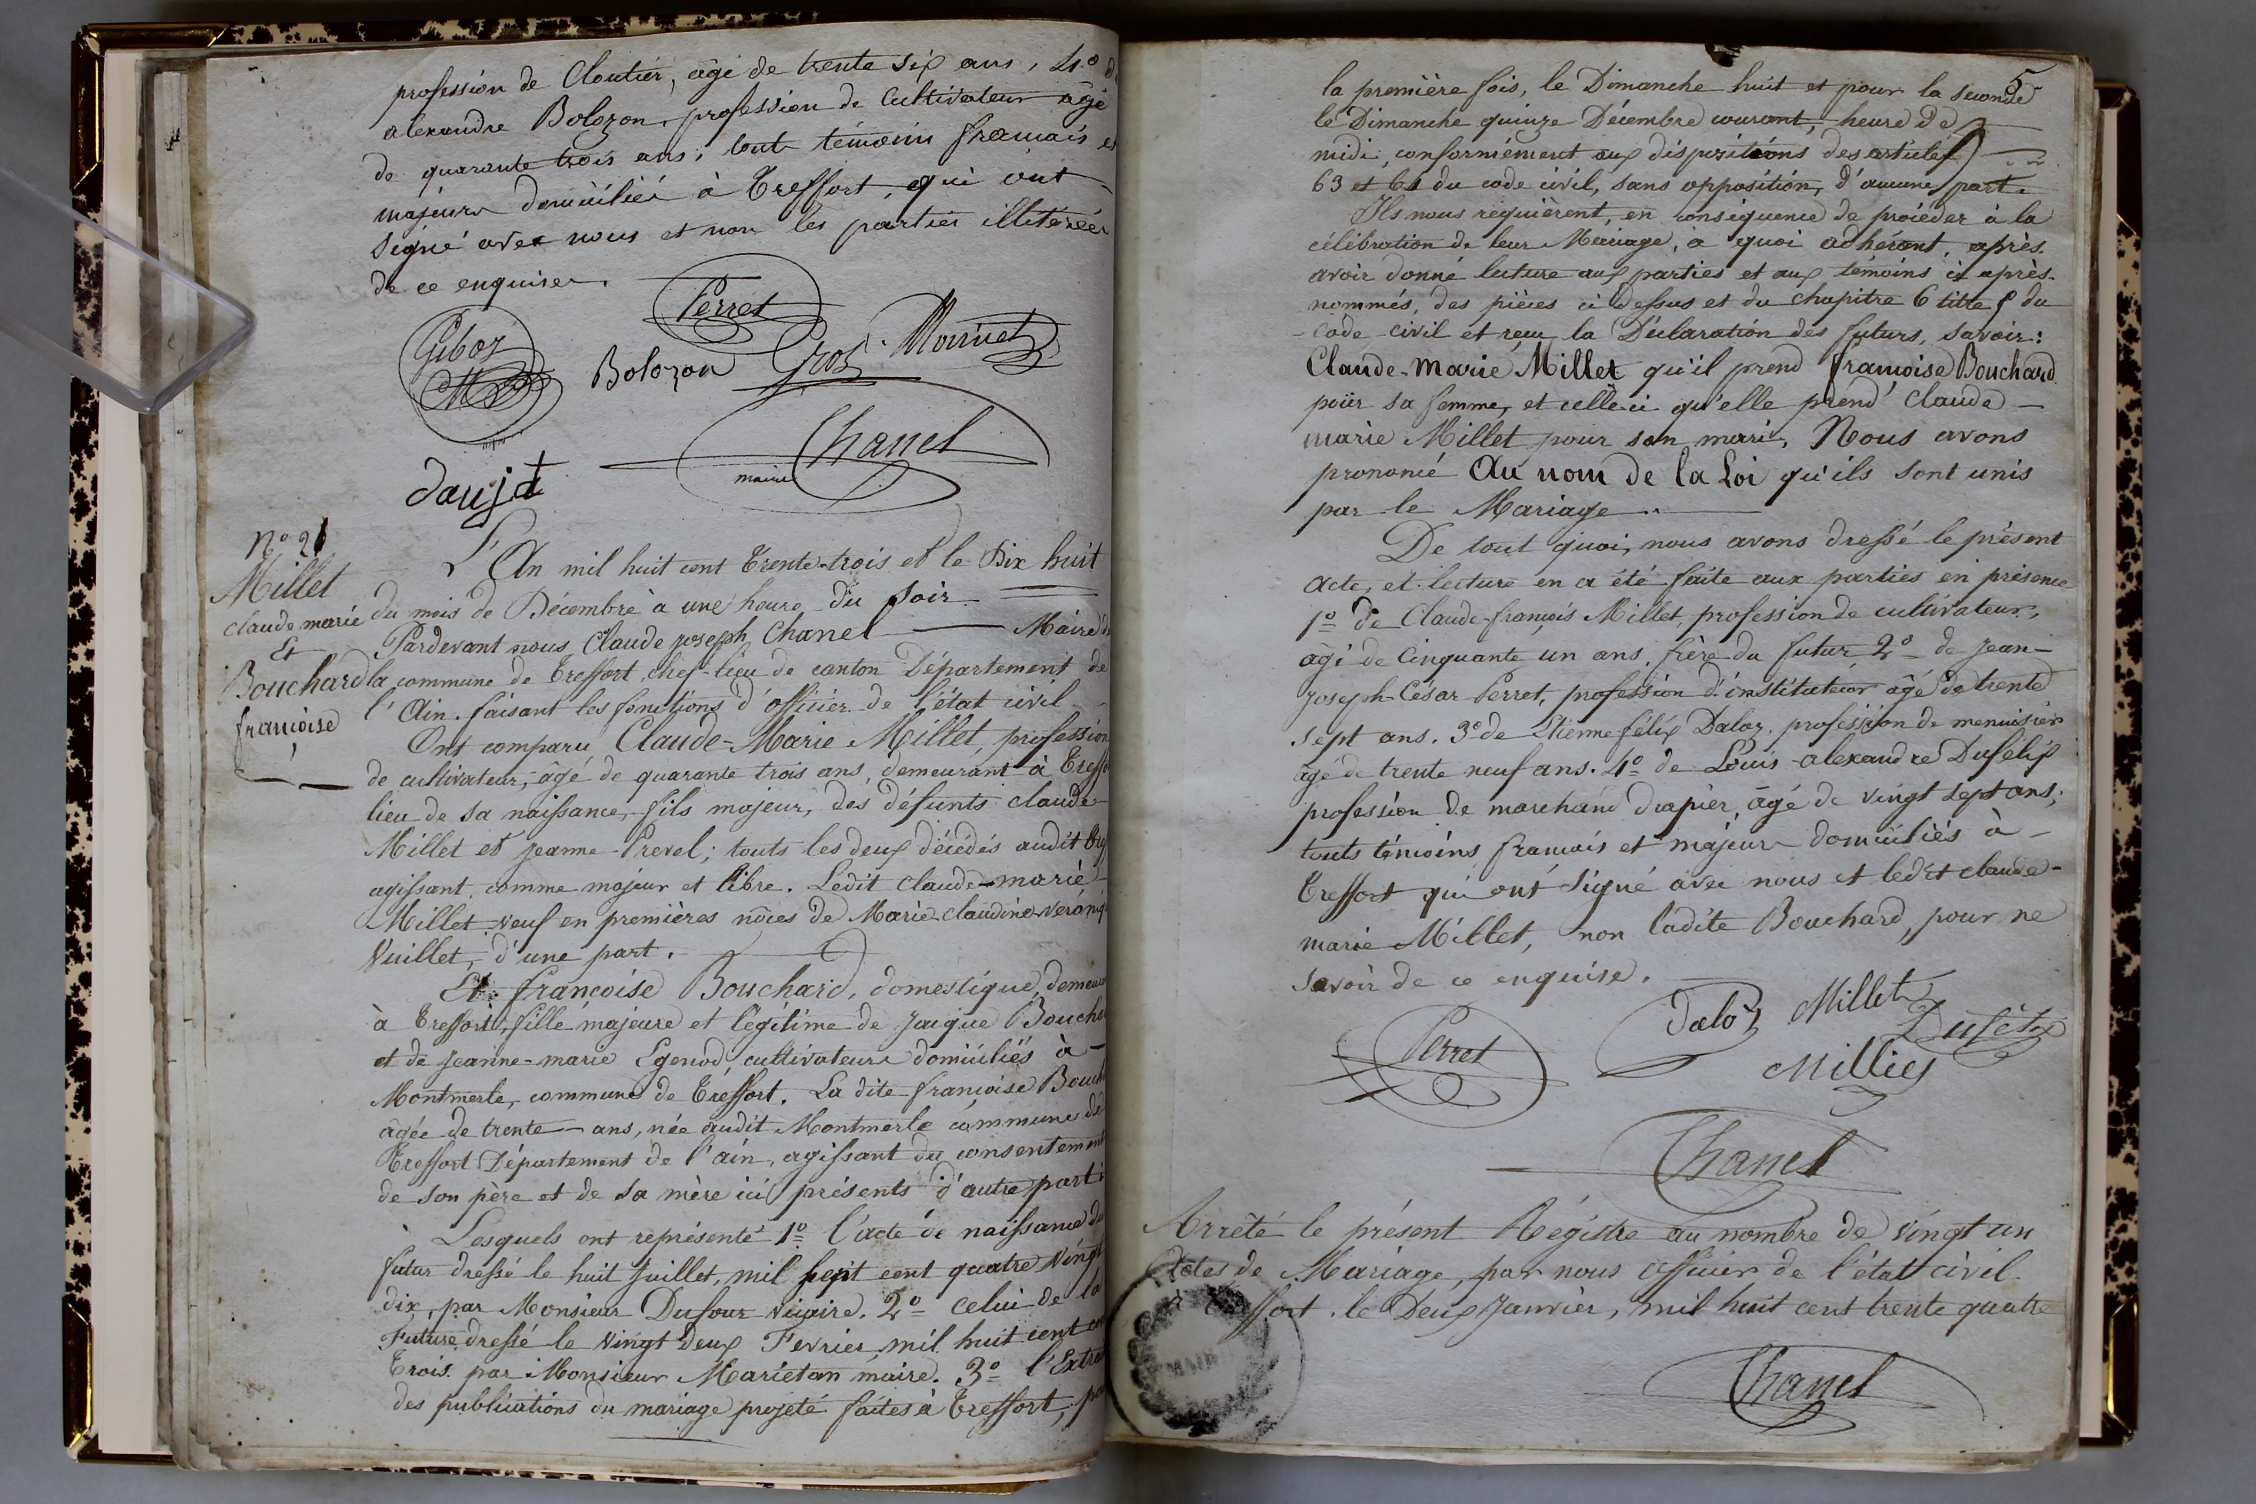 profession de Cloutier, âgé de trente six ans, 4.º d
alexandre Bolozon, profession de Cultivateur âgé
de quarante trois ans; tout témoins francais et
majeurs domiciliés à Treffort, qui ont
Signé avec nous et non les parties illitérées
de ce enquises.
Perret
Gros Monnet
Bolozon
Chanel
maire
N.º 21
Millet
claude marie
Et
Bouchard
françoise
L'An mil huit cent Trente-trois et le Dix huit
du mois de Décembre à une heure du Soir
Pardevant nous Claude joseph Chanel Maire de
la commune de Treffort, chef-lieu de canton Département de
l'Ain. faisant les fonctions d'officier de l'état civil
Ont comparu Claude-Marie Millet, profession
de cultivateur, âgé de quarante trois ans, demeurant à Treffo
lieu de sa naissance, fils majeur, des défunts claude
Millet et jeanne Prevel; touts les deux décédés audit
agissant comme majeur et libre. Ledit claude-marie
Millet veuf en premières nôces de Marie-claudine
Vuillet, d'une part.
Et françoise Bouchard, domestique, demeu
à Treffort, fille majeure et légitime de Jacque Bouch
et de jeanne-marie Egenod, cultivateurs domiciliés à
Montmerle, commune de Treffort. La dite françoise Bouch
âgée de trente ans, née audit Montmerle commune de
Treffort Département de l'ain, agissant du consentement
de son père et de sa mère ici présents d'autre part.
Lesquels ont représenté 1.º l'acte de naissance du
futur dressé le huit Juillet, mil sept cent quatre vingt
dix, par Monsieur Dufour vicaire. 2.º celui de la
Future dressé le vingt deux Fevrier, mil huit cent
trois par Monsieur Mariétan maire. 3.º l'Extra
des publications du mariage projeté faites à Treffort, po
5
la première fois, le Dimanche huit et pour la seconde
le Dimanche quinze Décembre courant, heure de
midi, conformément aux dispositions des articles
63 et 64 du code civil, sans opposition, d'aucune part.
Ils nous requièrent, en conséquence de procéder à la
célébration de leur Mariage, à quoi adhérant, après
avoir donné lecture aux parties et aux témoins ci après
nommés, des pièces ci dessus et du chapitre 6 titre 5 du
code civil et reçu la Déclaration des futurs, savoir:
Claude-Marie Millet qu'il prend françoise Bouchard
pour sa femme, et celle ci qu'elle prend claude
marie Millet pour son mari, Nous avons
prononcé Au nom de la Loi qu'ils sont unis
par le Mariage.
De tout quoi, nous avons dressé le présent
acte, et lecture en a été faite aux parties en présence
1.º de Claude-françois Millet, profession de cultivateur,
âgé de Cinquante un ans, frère du futur 2.º de Jean-
joseph-César Perret, profession d'instituteur âgé de trente
sept ans. 3.º de Etienne félix Daloz, profession de menuisier
âgé de trente neuf ans. 4.º de Louis-alexandre Dufélix
profession de marchand drapier, âgé de vingt sept ans;
touts témoins francais et majeurs domiciliés à
Treffort qui ont signé avec nous et ledit claude-
marie Millet, non ladite Bouchard, pour ne
savoir de ce enquise.
Daloz Millet
Perret
Chanel
Arrêté le présent Régistre au nombre de vingt un
actes de Mariage, par nous officier de l'état civil
à Treffort. le Deux Janvier, mil huit cent trente quatre
Chanel